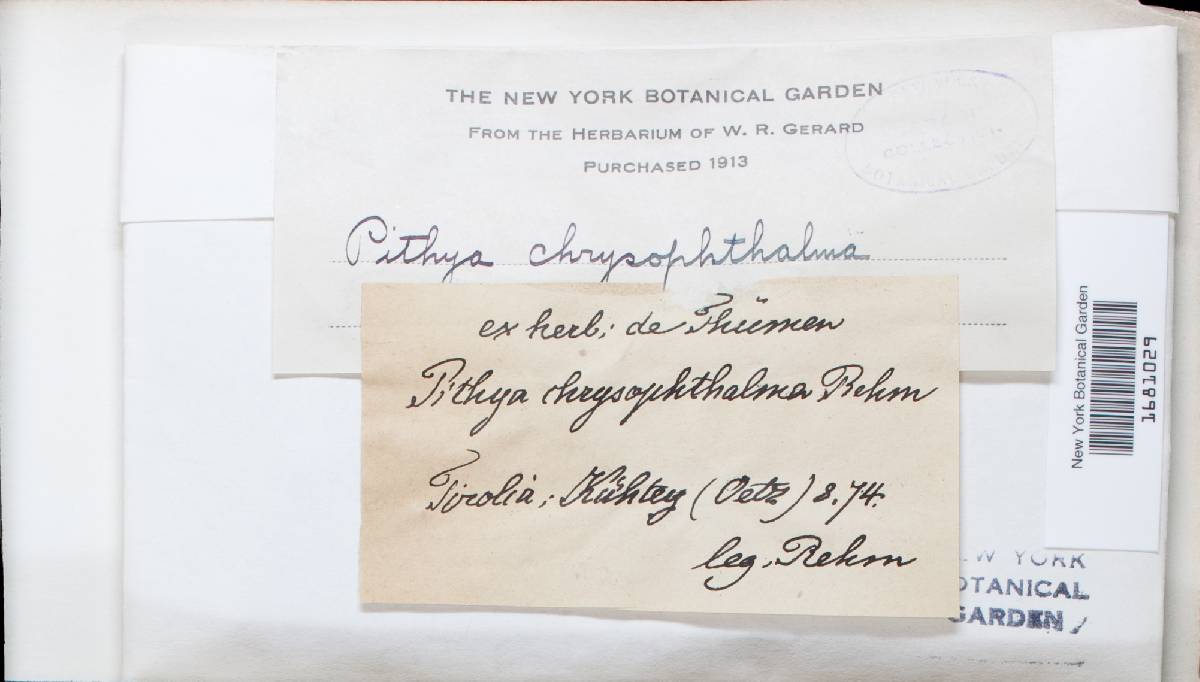 THE NEW YORK BOTANICAL GARDEN
FROM THE HERBARIUM OF W. R. GERARD
PURCHASED 1913
Pithya chrysophthalma
ex herb; de Thümen
Pithya chrysophthalma Rehm
Tirolia; Kühtey (Oetz) 8.74.
leg. Rehm
New York Botanical Garden
1681029
YORK
BOTANICAL
GARDEN